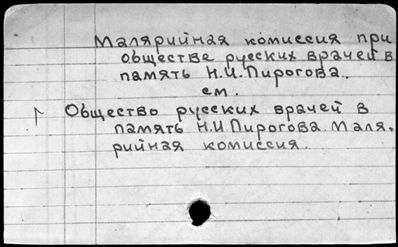 Малярийная комиссия при
обществе русских врачей в
память Н.И.Пирогова.
см.
Общество русских врачей в
память Н.И.Пирогова. Маля-
рийная комиссия.